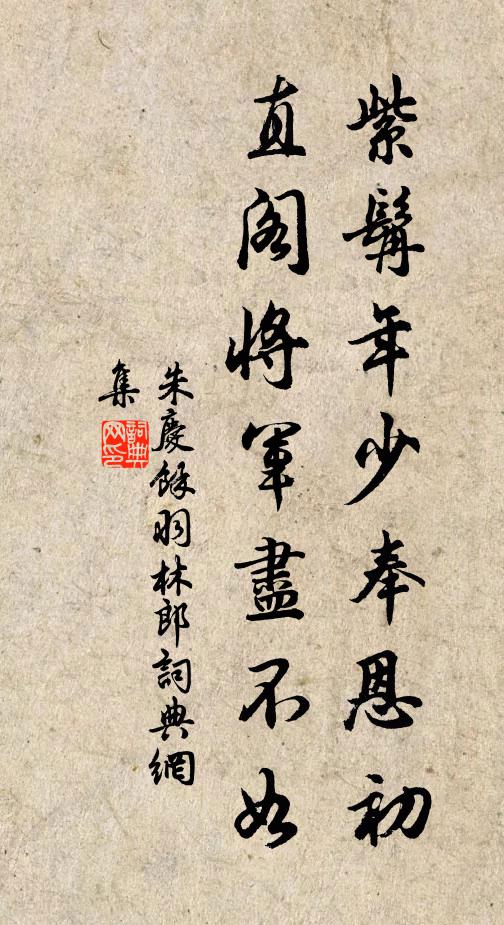 紫髯年少奉恩初
直閣將軍盡不如
朱慶餘羽林郎詞典網
集
詞典
网印